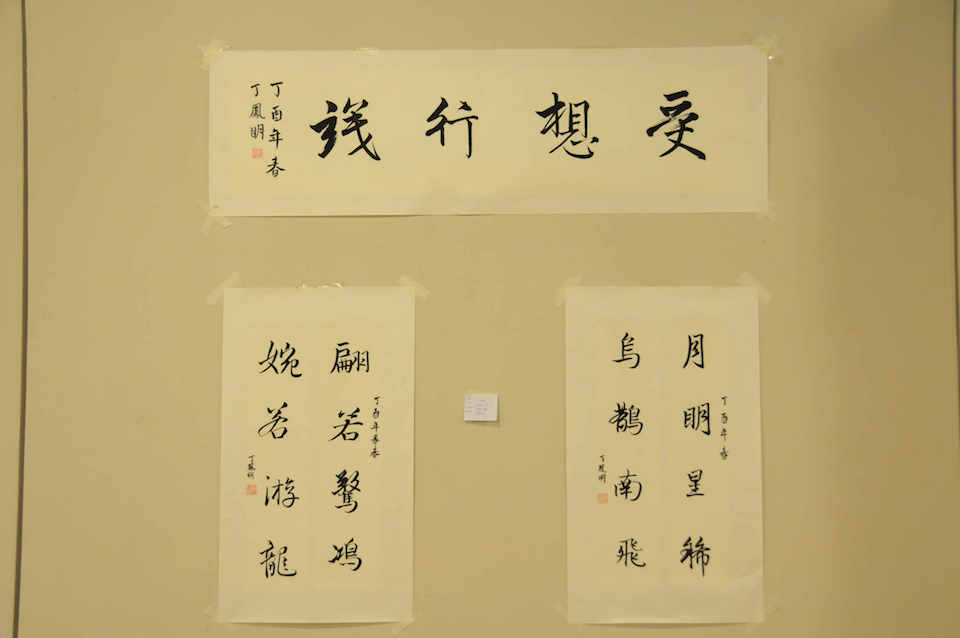 受想行識
丁酉年春
丁鳳明
月明星稀
丁酉年春
烏鵲南飛
丁鳳明
翩若驚鴻
丁酉年春
婉若游龍
丁鳳明